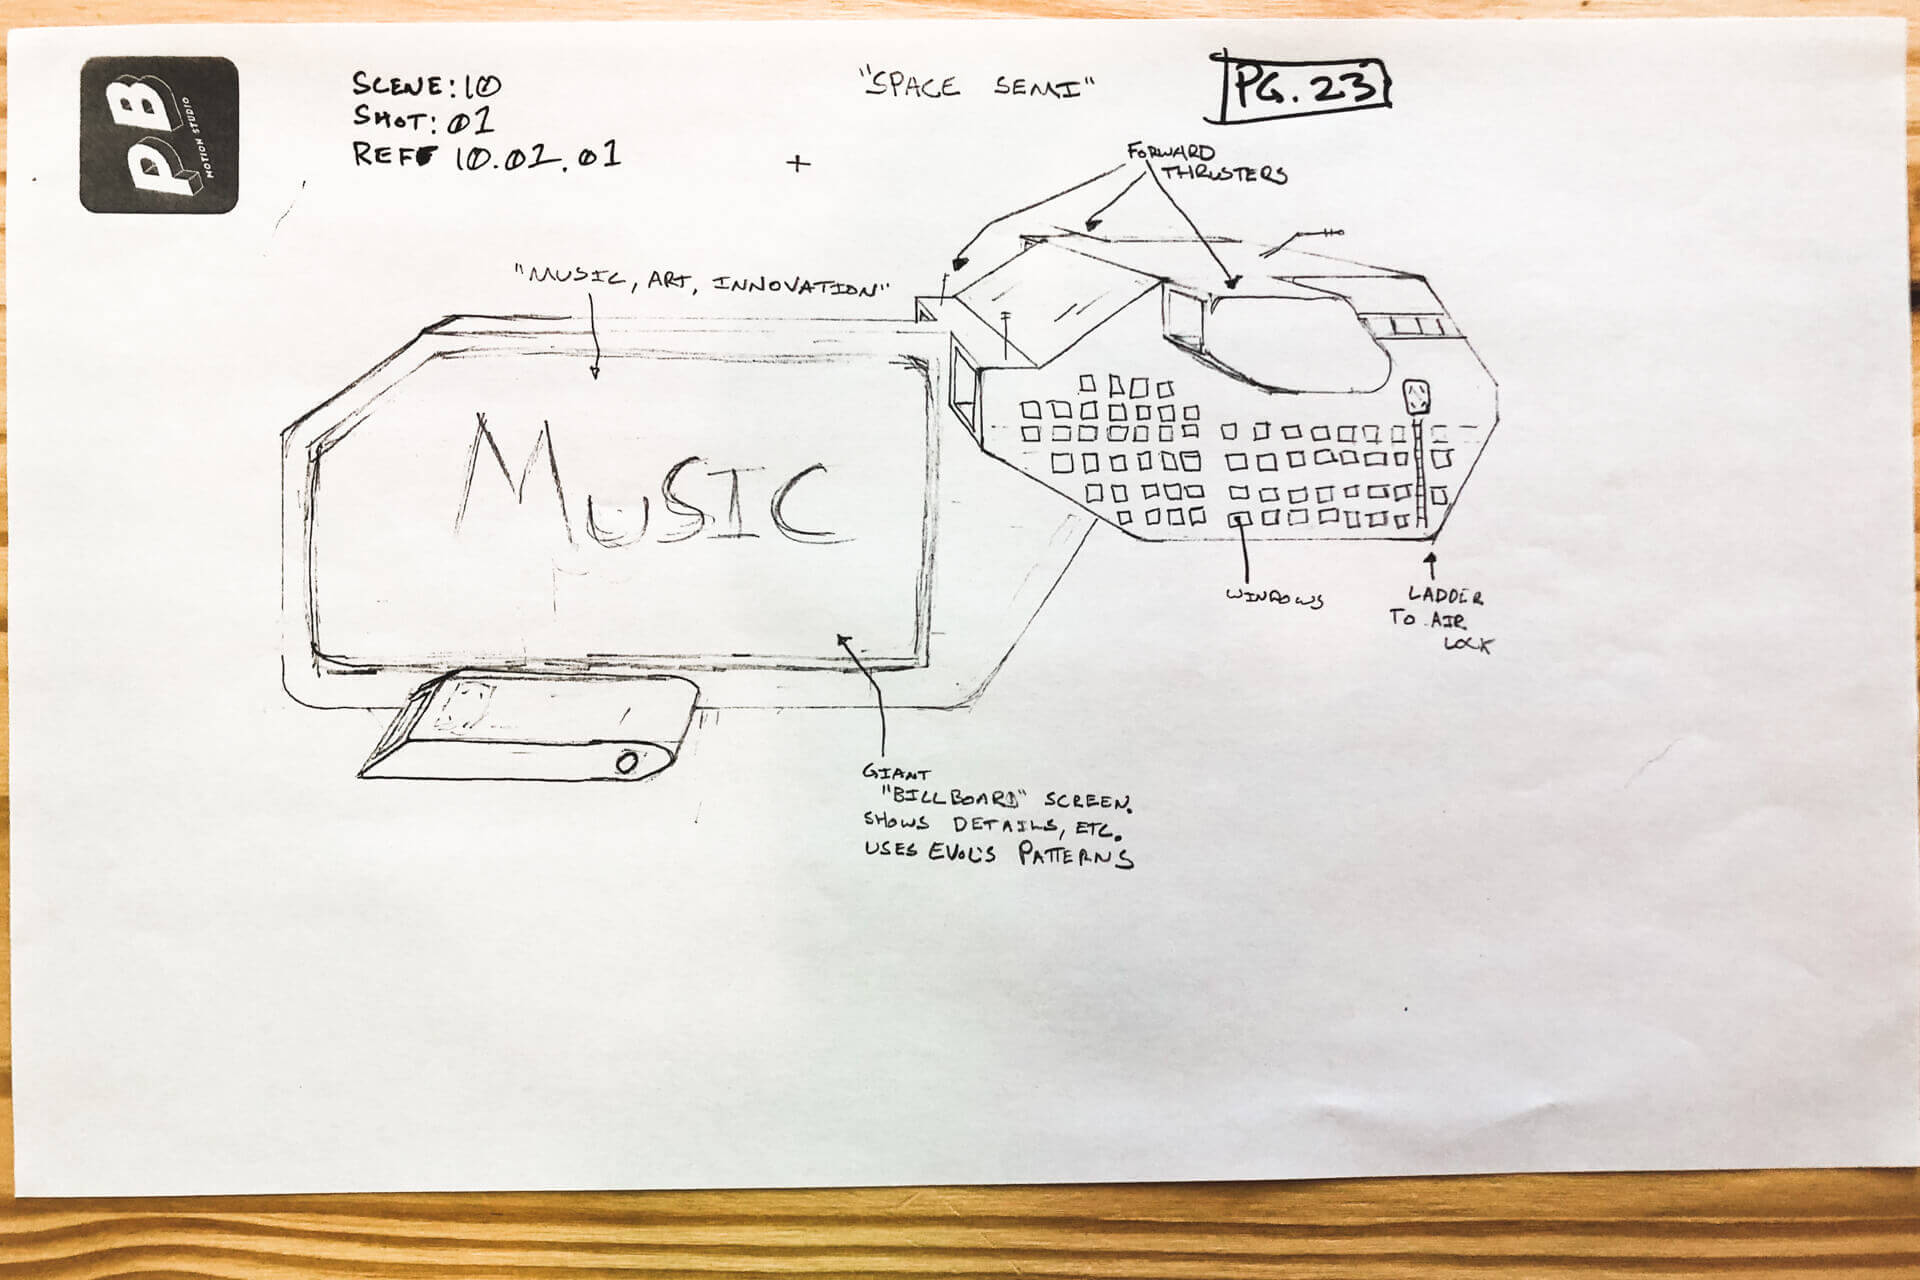 PB
MOTION STUDIO
SCENE: 10
SHOT: 01
REF 10.02.01
"SPACE SEMI"
PG. 23
FORWARD
THRUSTERS
"MUSIC, ART, INNOVATION"
MUSIC
WINDOWS
LADDER
TO AIR
LOCK
GIANT
"BILLBOARD" SCREEN.
SHOWS DETAILS, ETC.
USES EVOL'S PATTERNS